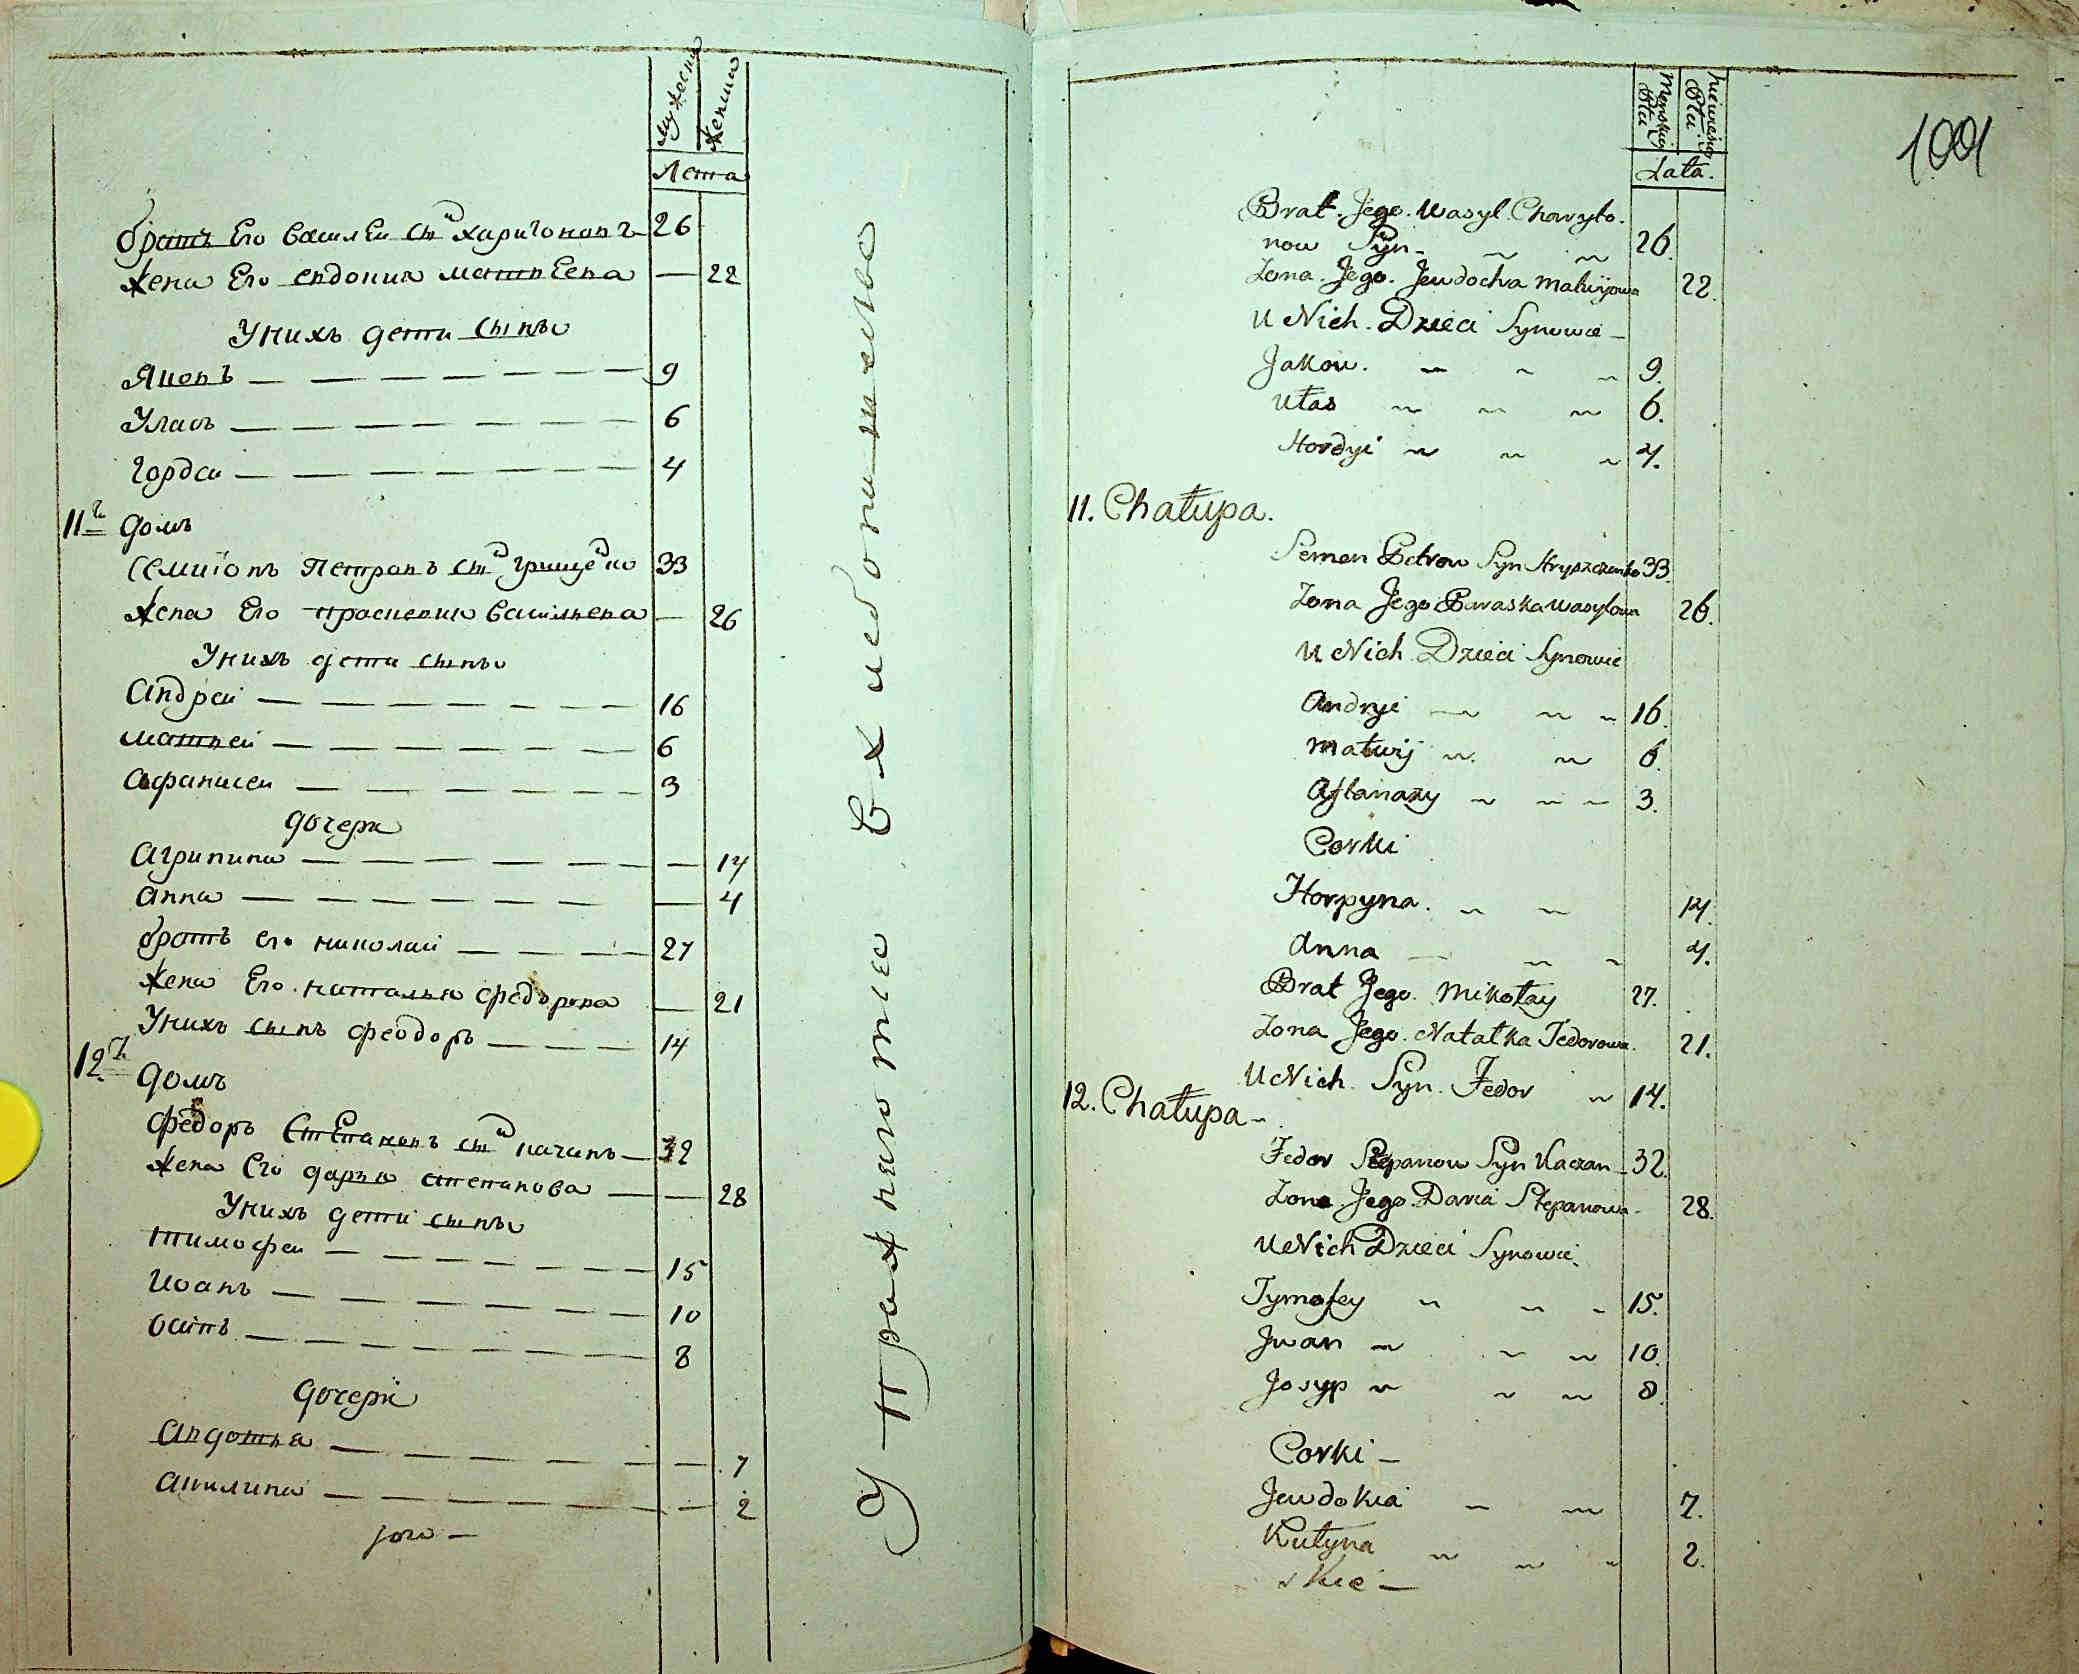 мужеска
женска
Лета
братъ Его василеи сн͠ъ харитоновъ 26
жена Его евдокия матвеева — 22
Унихъ дети сыны
Яковъ — — — — — — 9
Уласъ — — — — — — 6
Гордеи — — — — — — 4
11й домъ
Семионъ Петровъ сн͠ъ Грищенко 33
жена Его прасковия васильева — 26
Унихъ дети сыны
Андреи — — — — — — 16
матвеи — — — — — — 6
афанасеи — — — — — 3
дочери
Агрипина — — — — — — 14
анна — — — — — — 4
братъ его николаи — — — — 27
жена Его наталья федорова — 21
Унихъ сынъ феодоръ — — — 14
12й домъ
федоръ Степановъ сн͠ъ качанъ — 32
жена Его дарья степанова — — 28
Унихъ дети сыны
тимофеи — — — — — 15
Иоанъ — — — — — 10
осипъ — — — — — — 8
дочери
Авдотья — — — — — 7
акилина — — — — — 2
Упражнѧютсѧ в хлебопашестве
1001
Męskiey Płci
Niewieściey Płci
Lata.
Brat. Jego. Wasyl. Charyto-
now Syn - 26.
Zona. Jego. Jewdocha Matwijowa 22.
U Nich. Dzieci Synowie -
Jakow. 9.
Ułas 6.
Hordyi 4.
11. Chałupa.
Semen Petrow Syn Hryszczenko 33.
Zona Jego Paraska Wasylowa 26.
U Nich Dzieci Synowie
Andryi 16.
Matwij 6.
Aftanazy 3.
Corki
Horpyna. 14.
Anna 4.
Brat Jego. Mikołay 27.
Zona Jego. Natałka Fedorowa. 21.
U Nich. Syn. Fedor 14.
12. Chałupa -
Fedor Stepanow Syn Kaczan 32.
Zona Jego Daria Stepanowa - 28.
U Nich Dzieci Synowie.
Tymofey 15.
Jwan 10.
Josyp 8.
Corki -
Jewdokia 7.
Kułyna 2.